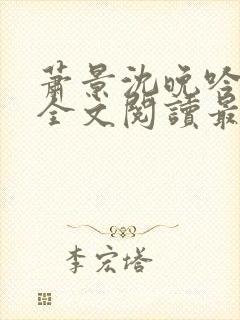 蕭景沈晚吟
全文閱讀最
李宏塔